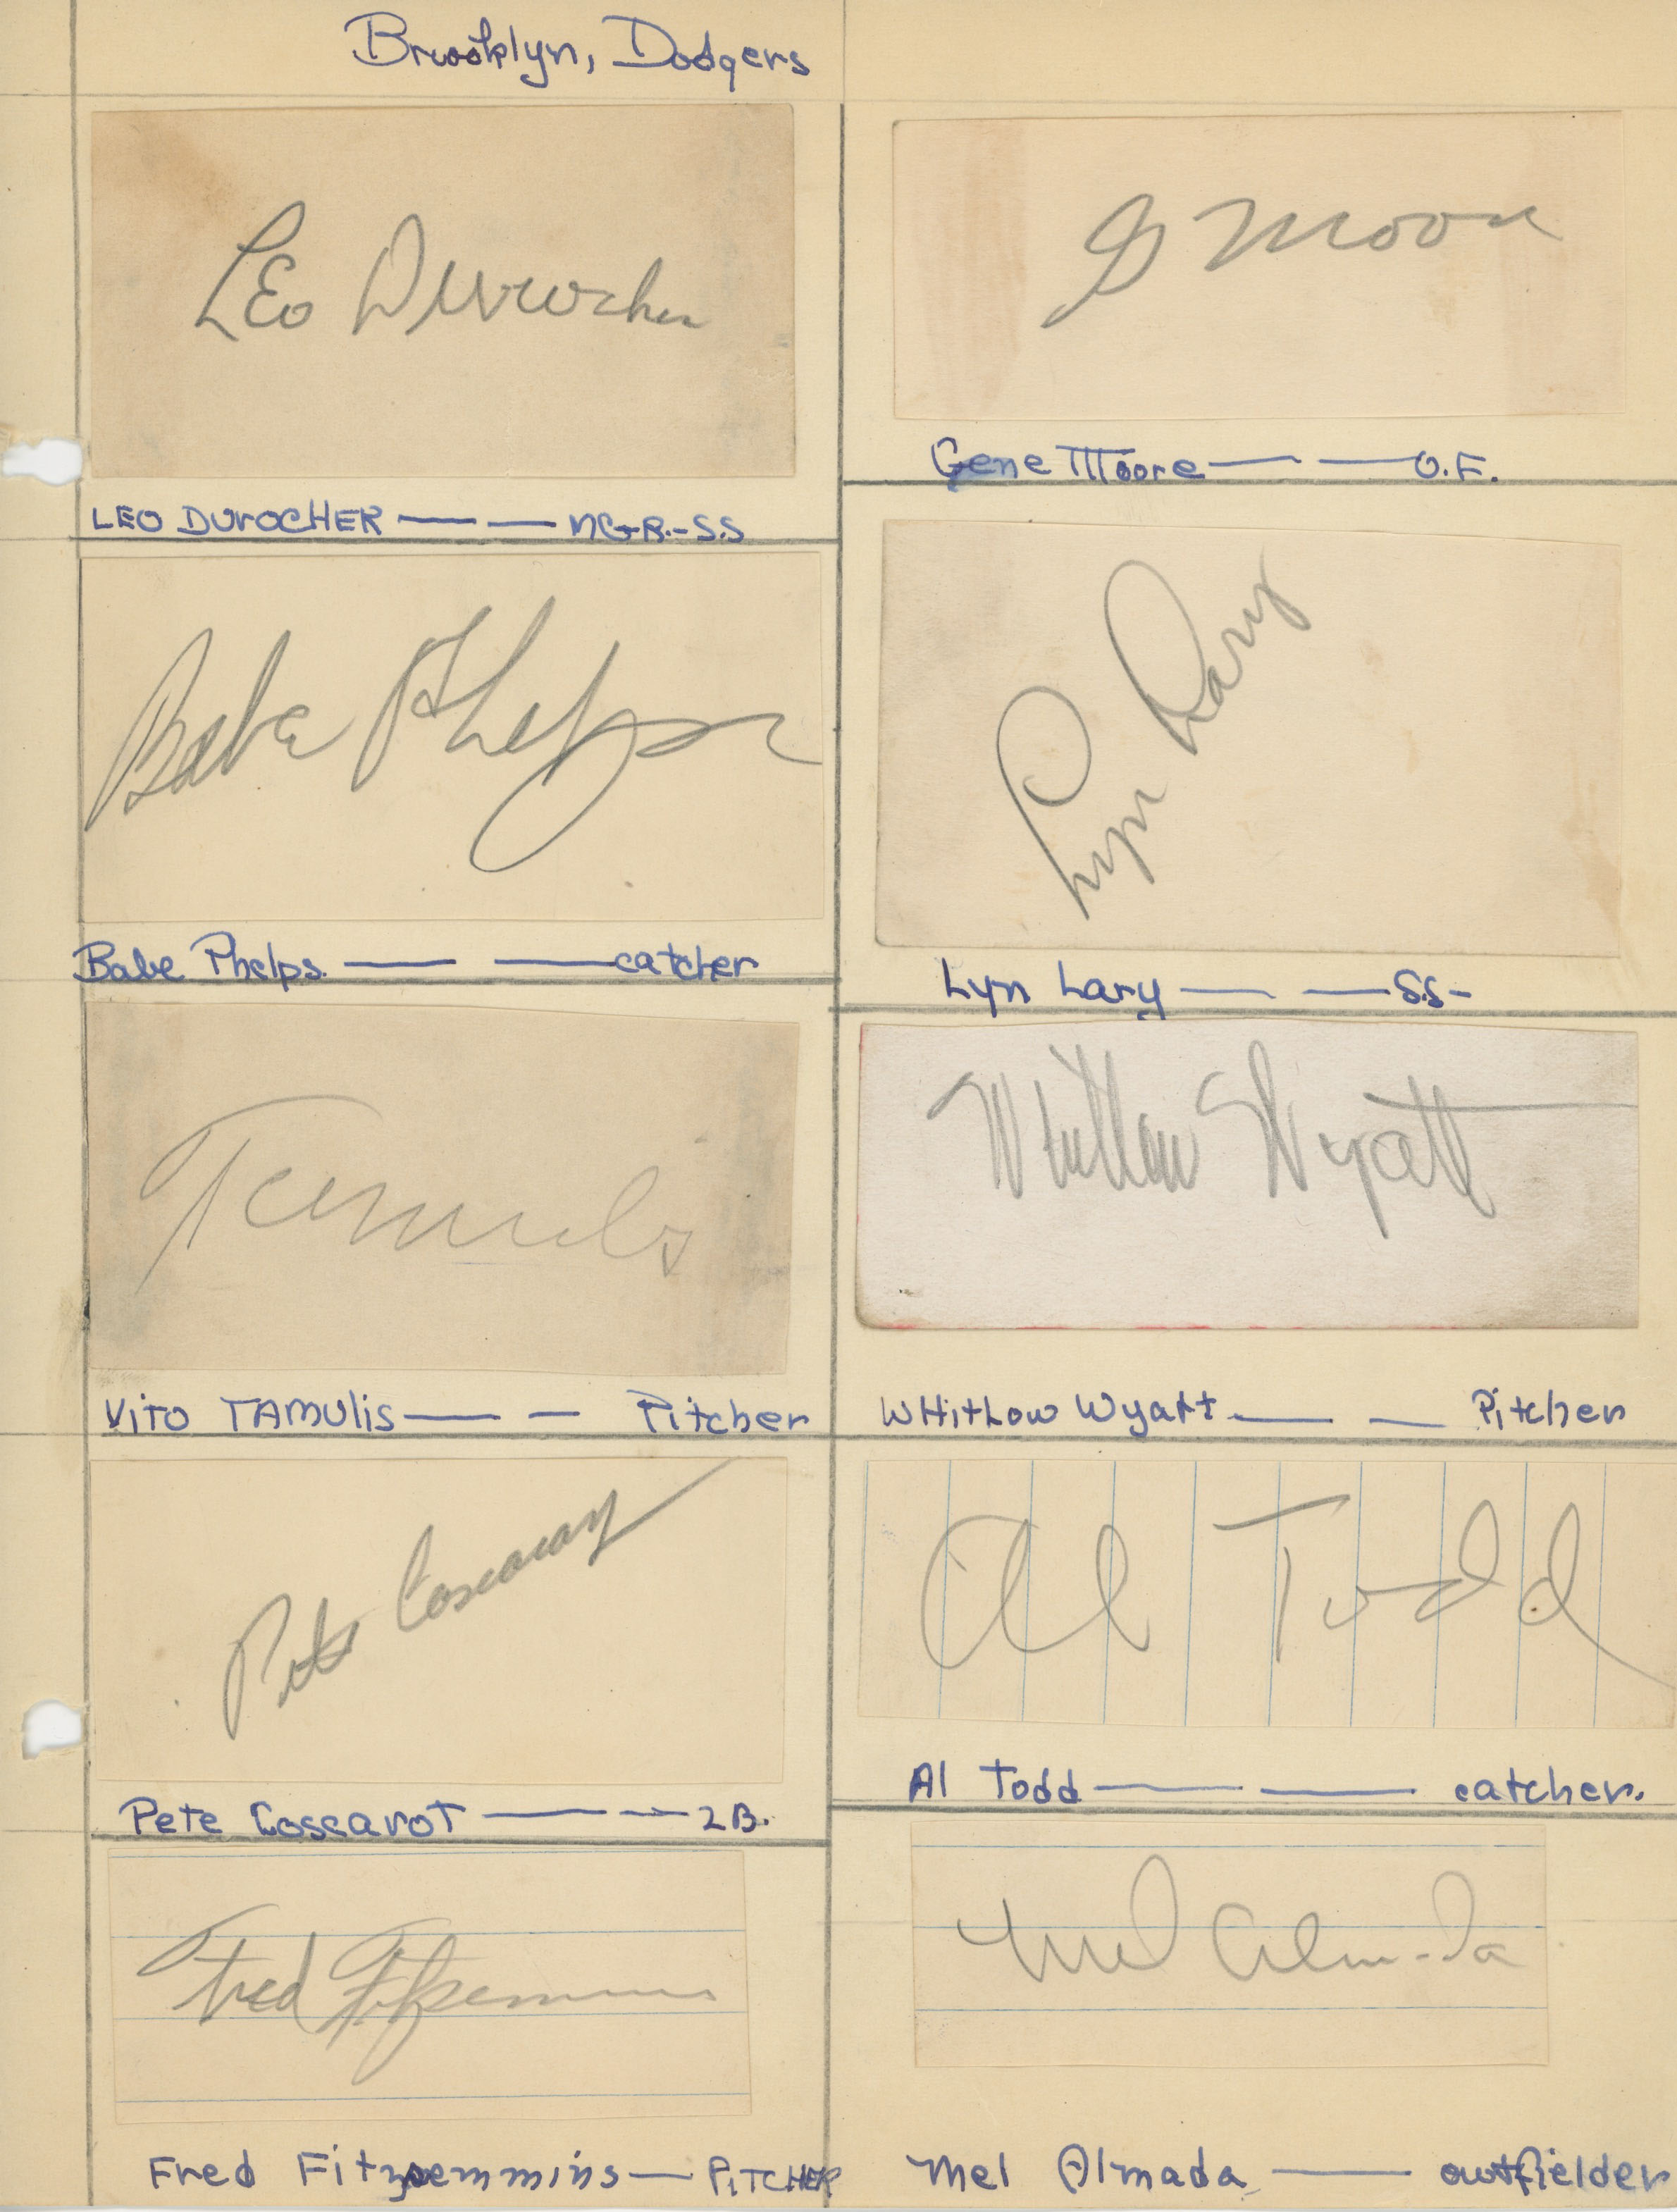 Brooklyn, Dodgers
Leo Durocher
LEO DUROCHER — — MGR.-S.S
Babe Phelps
Babe Phelps. — — catcher
Tamulis
Vito TAMULis — — Pitcher
Pete Coscarart
Pete Coscarot — — 2B.
Fred Fitzsimmons
Fred Fitzsemmins — PiTCHER
G Moore
Gene Moore — — O.F.
Lyn Lary
Lyn Lary — — S.S-
Whitlow Wyatt
WHitLow Wyatt — — Pitcher
Al Todd
Al Todd — — catcher.
Mel Almada
Mel Almada — outfielder